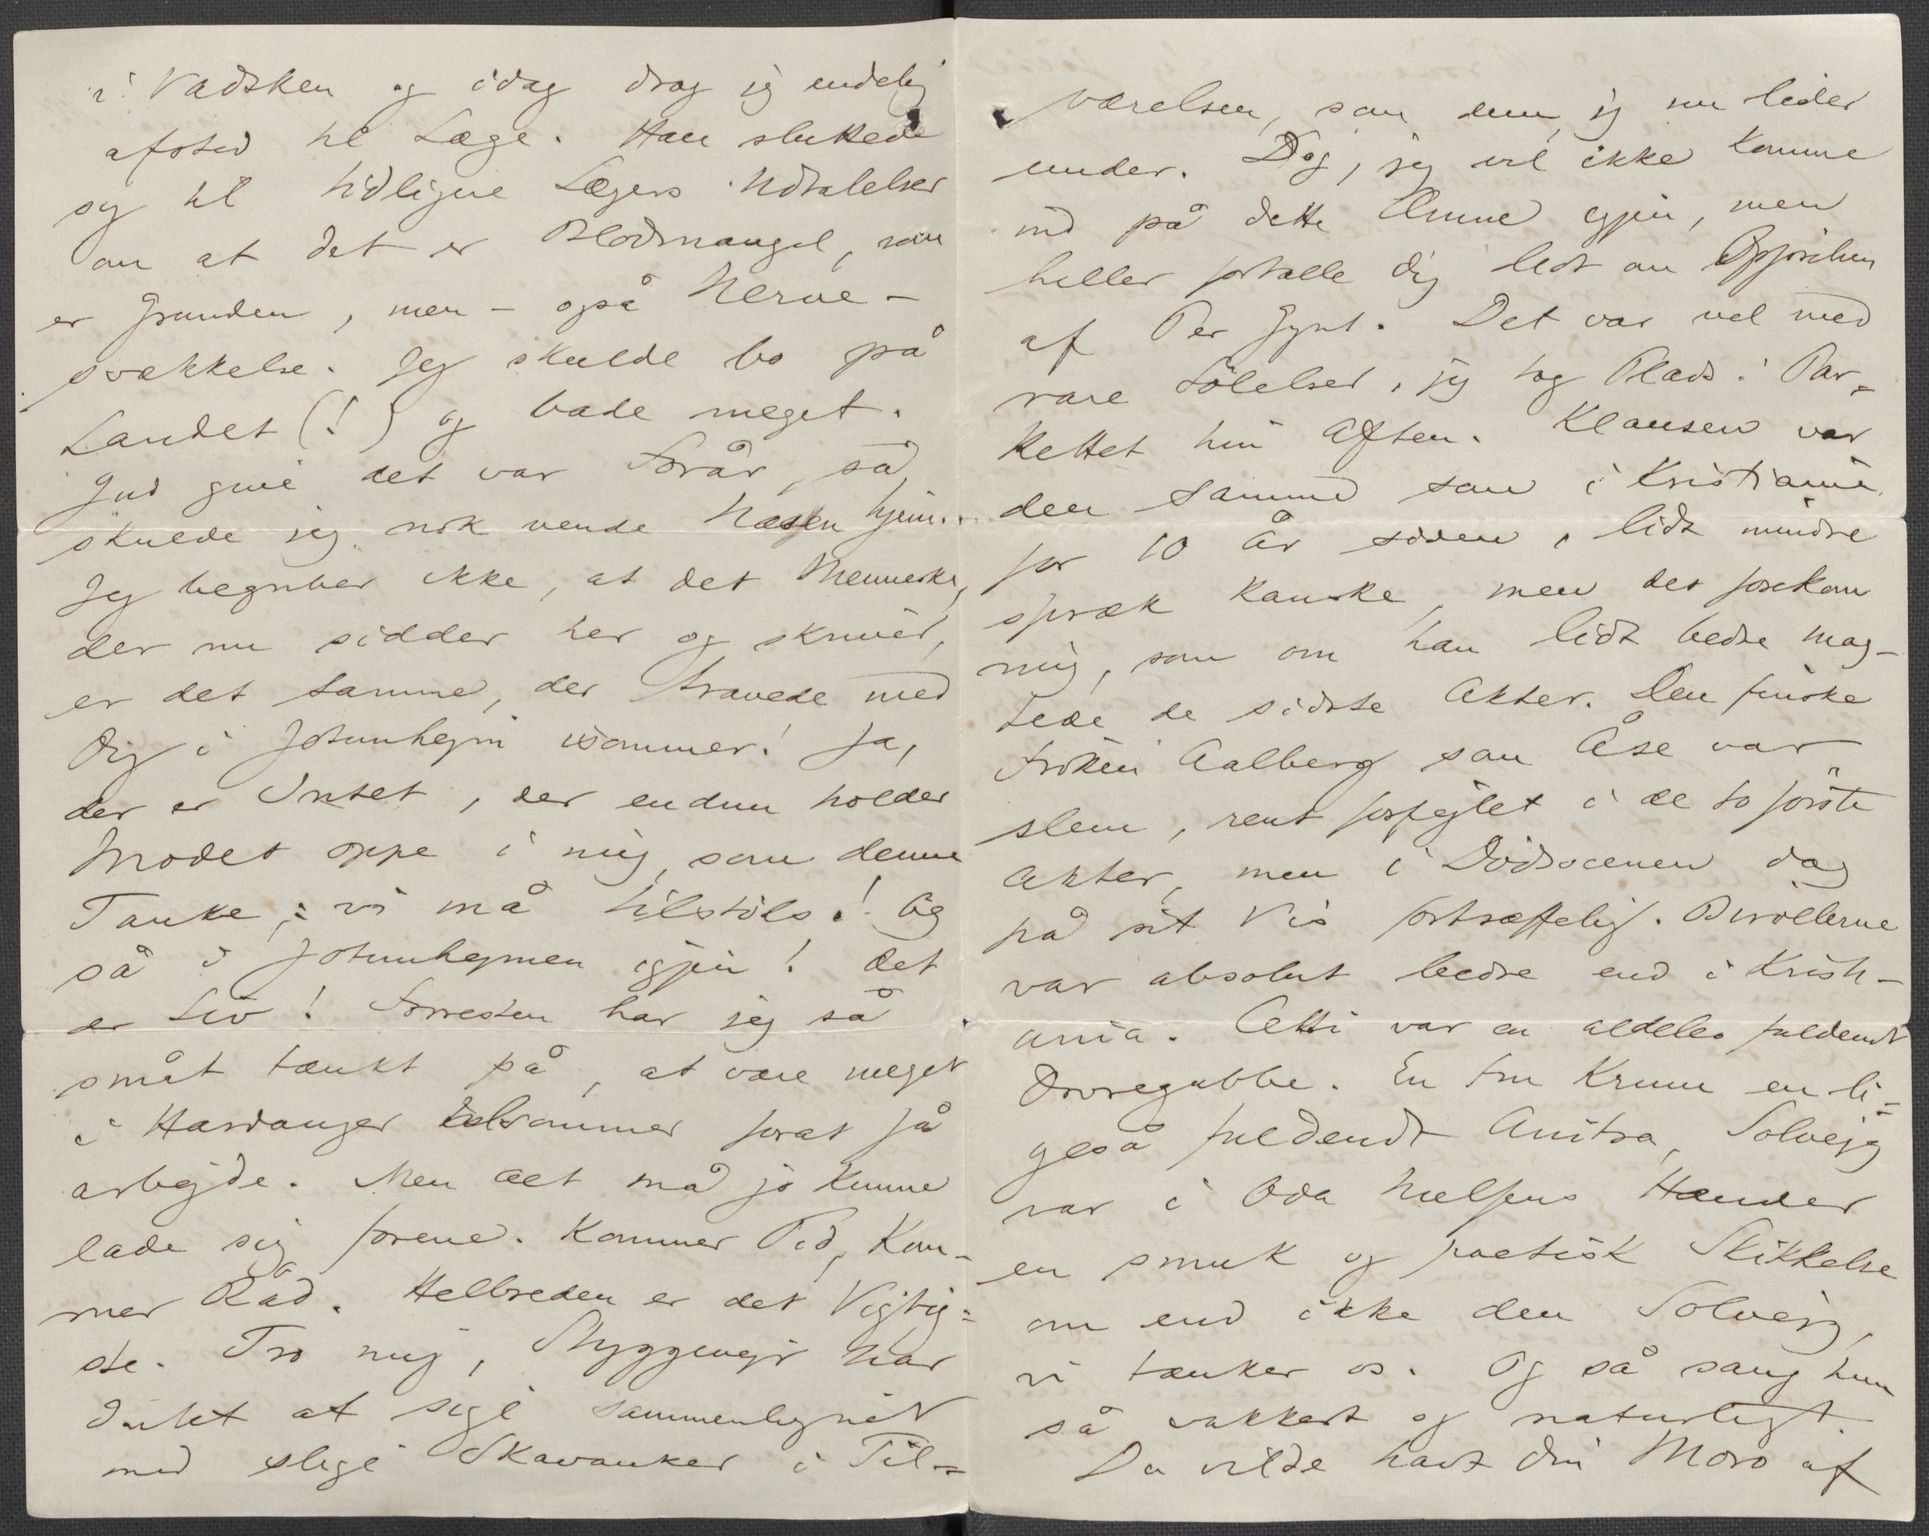 i Vadsken og idag drog jeg endelig
afsted til Læge. Han sluttede
sig til tidligere Lægers Udtalelser
om at det er Blodmangel, som
er Grunden, men – også Nerve-
svækkelse. Jeg skulde bo på
Landet (!) og bade meget.
Gud give det var Forår, så
skulde jeg nok vende Næsen hjem.
Jeg begriber ikke, at det Menneske,
der nu sidder her og skriver,
er det samme, der travede med
Dig i Jotunhejm isommer! Ja,
der er Intet, der endnu holder
Modet oppe i mig som denne
Tanke: vi må tilstöls! Og
så i Jotunhejmen igjen! Det
er Liv! Forresten har jeg så
småt tænkt på, at være meget
i Hardanger tilsommer forat få
arbejde. Men det må jo kunne
lade sig forene. Kommer Tid, Kom-
mer Råd. Helbreden er det Vigtig-
ste. Tro mig, Styggevejr har
Intet at sige sammenlignet
med slige Skavanker i Til-
værelsen, som dem jeg nu lider
under. Dog, jeg vil ikke komme
ind på dette Emne igjen, men
heller fortælle Dig lidt om Opførelsen
af Per Gynt. Det var vel med
rare Følelser, jeg tog Plads i Par-
kettet hin Aften. Klausen var
den samme som i Kristiania
for 10 År siden, lidt mindre
spræk kanske, men det forekom
mig, som om han lidt bedre mag-
tede de sidste Akter. Den finske
Fröken Aalberg som Åse var
slem, rent forfejlet i de to förste
Akter, men i Dödsscenen dog
på sit Vis fortræffelig. Birollerne
var absolut bedre end i Kristi-
ania. Cetti var en aldeles fuldendt
Dovregubbe. En Fru Krum en li-
geså fuldendt Anitra, Solvejg
var i Oda Nielsens Hænder
en smuk og poetisk Skikkelse
om end ikke den Solvejg,
vi tænker os. Og så sang hun
så vakkert og naturligt.
Du vilde havt din Moro af